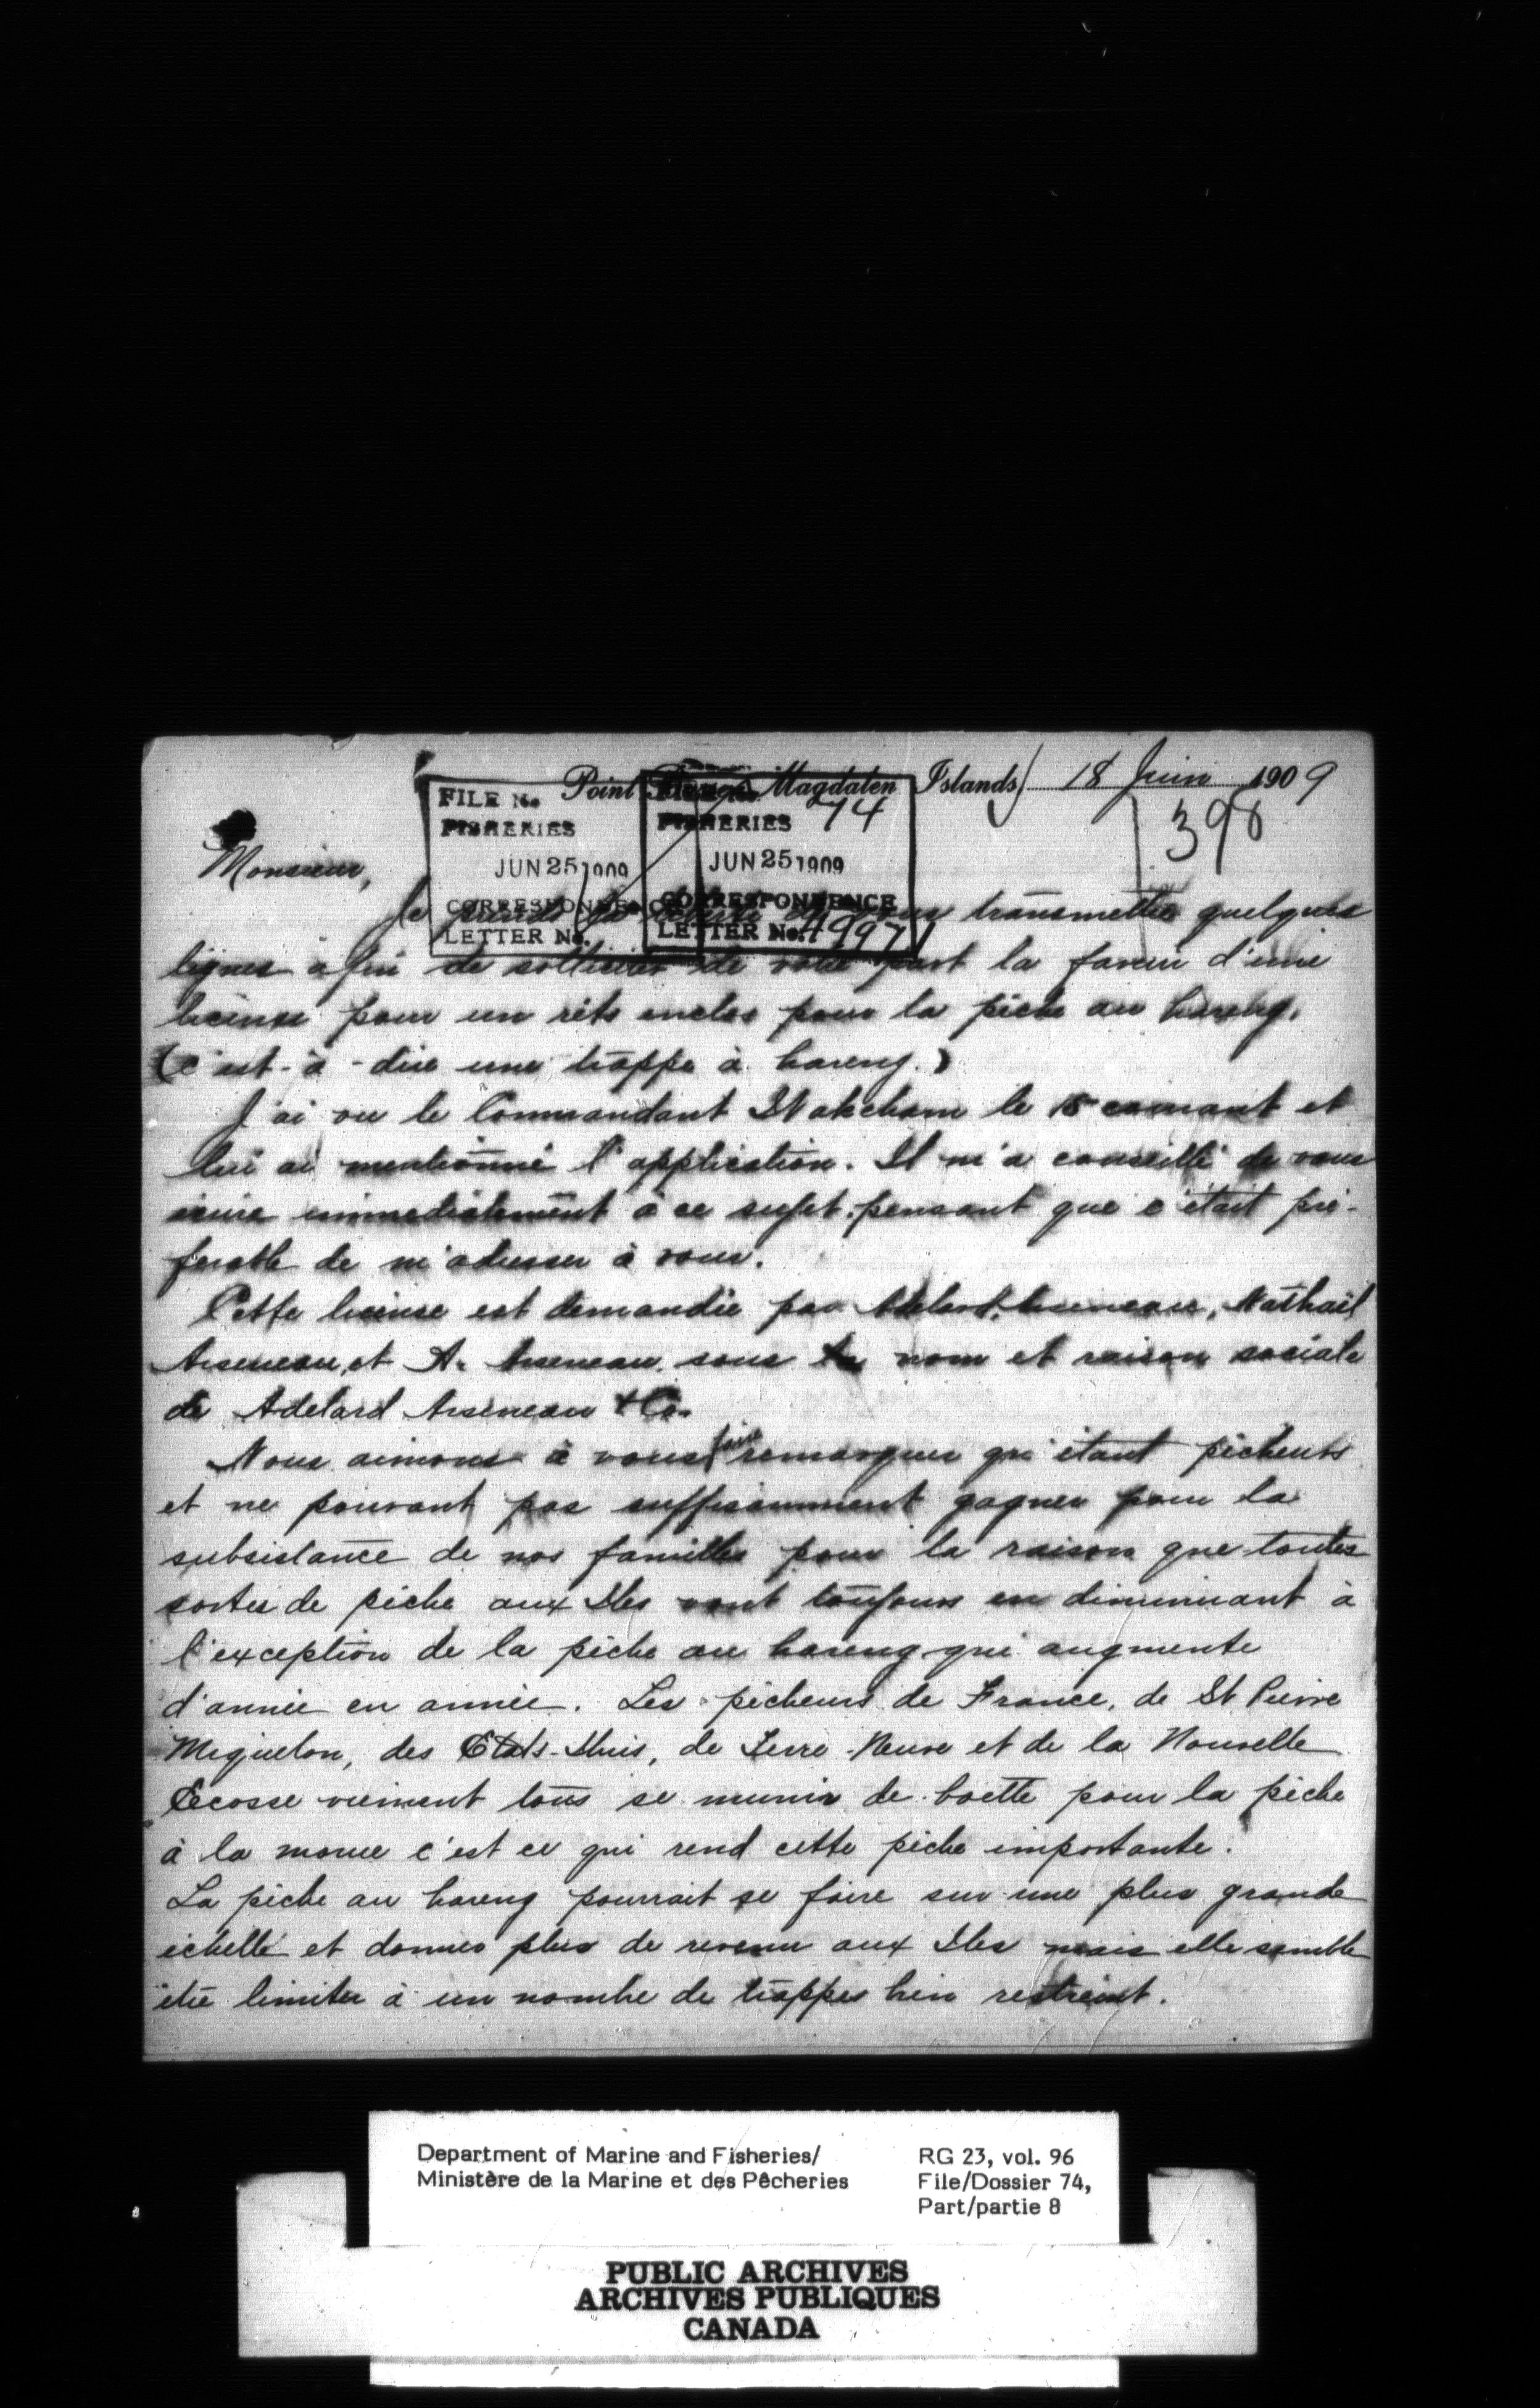 Point Basse, Magdalen Islands, 18 Juin 1909
398
FILE No.
FISHERIES
JUN 25 1909
CORRESPONDENCE
LETTER No.
FILE No.
FISHERIES 74
JUN 25 1909
CORRESPONDENCE
LETTER No. 49971
Monsieur,
Je prends la liberté de vous transmettre quelques
lignes afin de solliciter de votre part la faveur d'une
license pour un rêts enclos pour la pêche au hareng.
(c'est-à-dire une trappe à hareng.)
J'ai vu le Commandant Wakeham le 15 courant et
lui ai mentionné l'application. Il m'a conseillé de vous
écrire immediatement à ce sujet, pensant que c'était pré-
ferable de m'adresser à vous.
Cette license est demandée par Adelard Arseneau, Nathaël
Arseneau, et A. Arseneau, sous le nom et raison sociale
de Adelard Arseneau & Co.
Nous aimons à vous faire remarquer qu'étant pêcheurs
et ne pouvant pas suffisamment gagner pour la
subsistance de nos familles pour la raison que toutes
sortes de pêche aux Iles vont toujours en diminuant à
l'exception de la pêche au hareng qui augmente
d'année en année. Les pêcheurs de France, de St Pierre
Miquelon, des Etats-Unis, de Terre-Neuve et de la Nouvelle
Ecosse viennent tous se munir de boette pour la pêche
à la morue c'est ce qui rend cette pêche importante.
La pêche au hareng pourrait se faire sur une plus grande
échelle et donner plus de revenu aux Iles mais elle semble
être limiter à un nombre de trappes bien restreint.
Department of Marine and Fisheries/
Ministère de la Marine et des Pêcheries
RG 23, vol. 96
File/Dossier 74,
Part/partie 8
PUBLIC ARCHIVES
ARCHIVES PUBLIQUES
CANADA